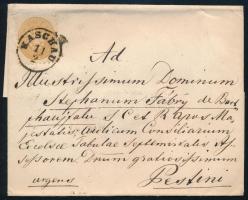 KASCHAU
11
2
Ad
Illustrissimum Dominum
Stephanum Fábry de Buck
S C et R Apus Ma
Aulicum Consiliarium
Excelsæ Tabulæ Septemviralis As
sessorem Dnum gratiosissimum
urgens
Pestini